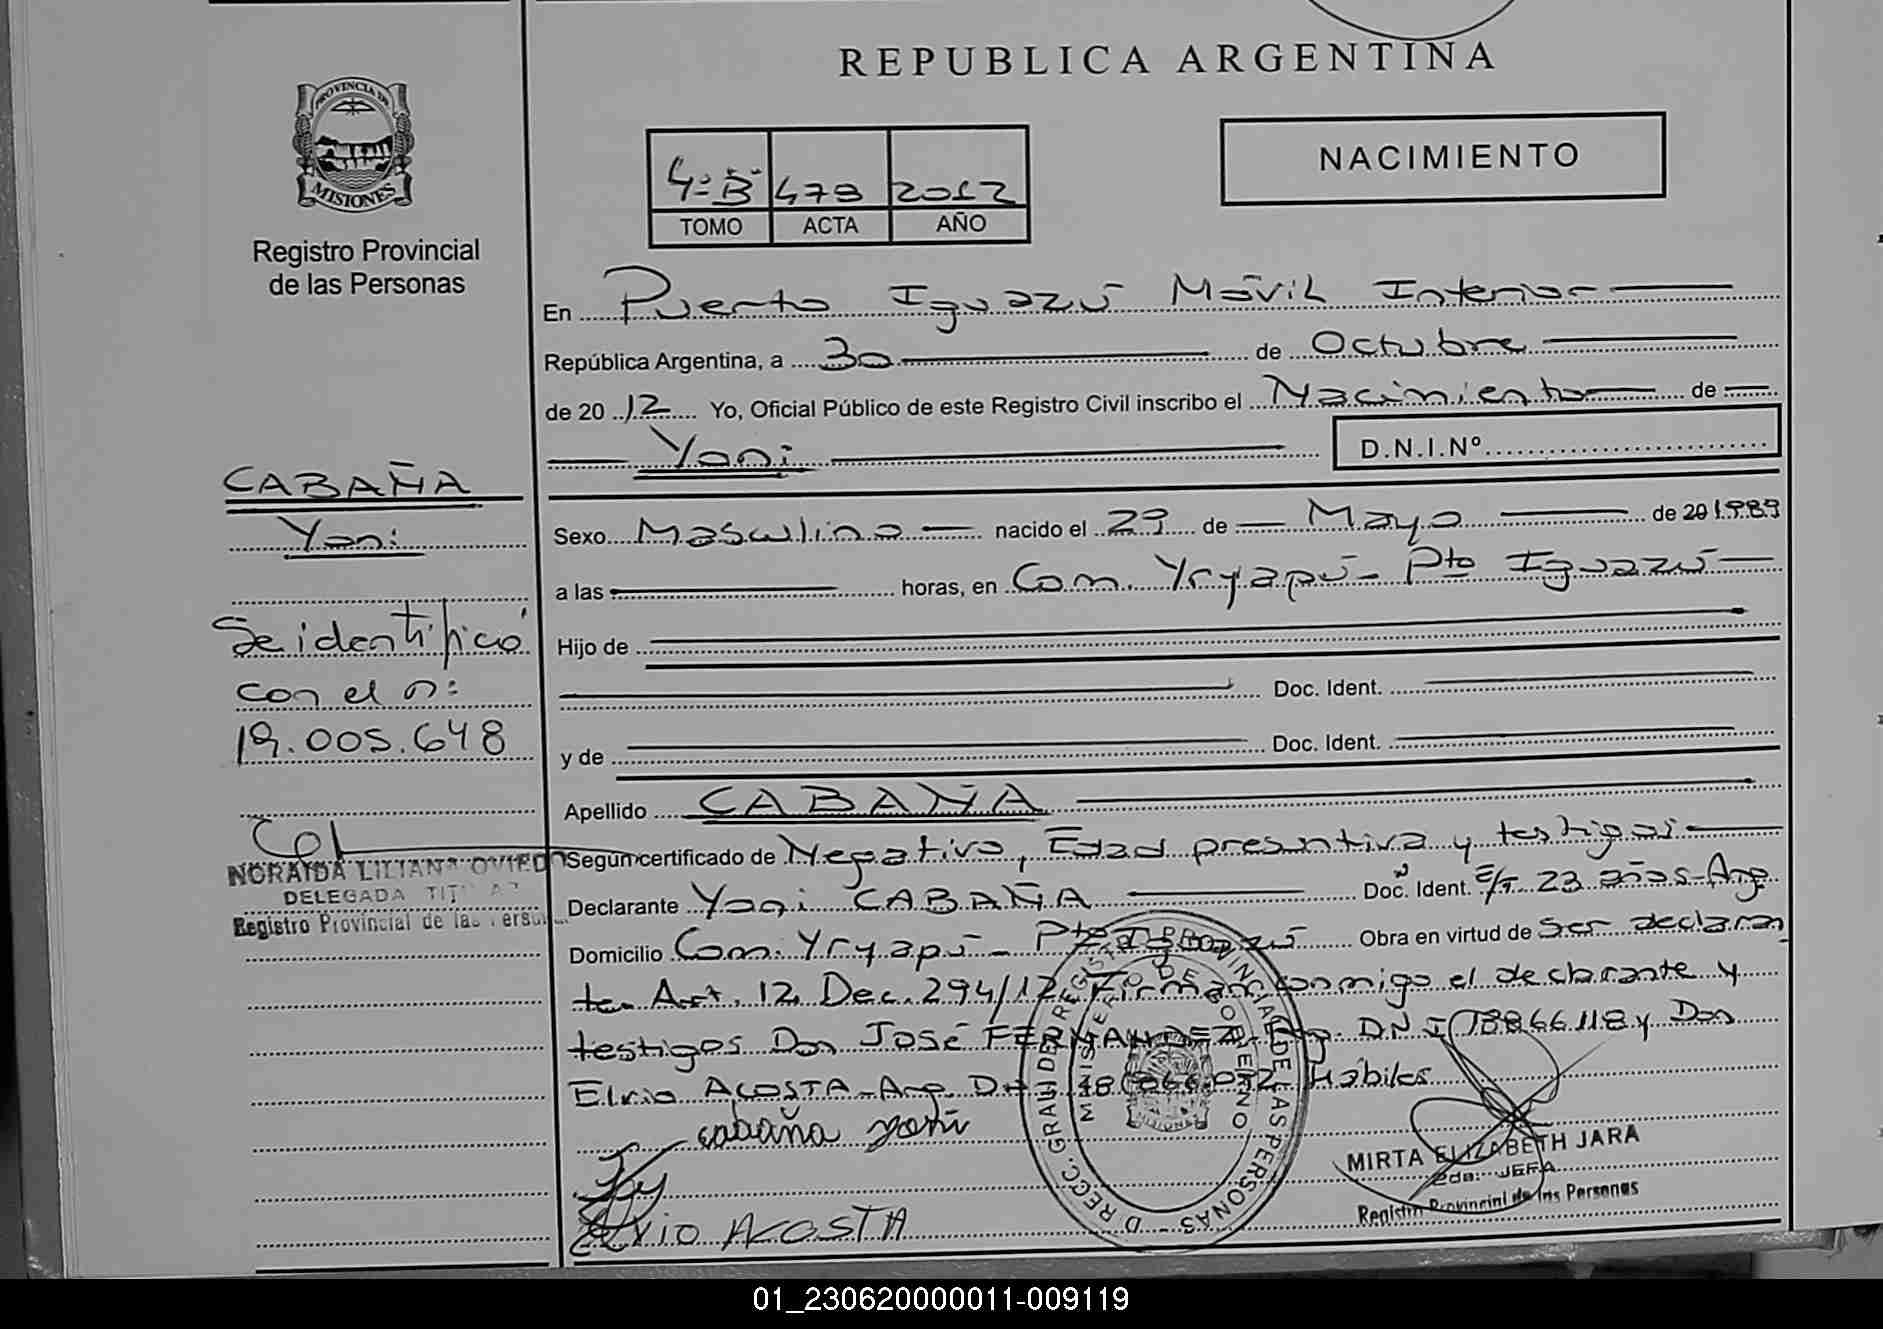 REPUBLICA ARGENTINA
PROVINCIA DE
MISIONES
Registro Provincial
de las Personas
4º "B" 479 2012
TOMO ACTA AÑO
NACIMIENTO
En Puerto Iguazú Móvil Interior
República Argentina, a 30 de Octubre
de 2012 Yo, Oficial Público de este Registro Civil inscribo el Nacimiento de
Yoni
D.N.I.Nº
CABAÑA
Yoni
Se identificó
con el nº
19.005.648
NORAIDA LILIANA OVIEDO
DELEGADA
Registro Provincial de las
Sexo Masculino nacido el 29 de Mayo de 20 1989
a las horas, en Com. Yryapú - Pto Iguazú
Hijo de
Doc. Ident.
y de Doc. Ident.
Apellido CABAÑA
Según certificado de Negativo, Edad presuntiva y testigos
Declarante Yoni CABAÑA Doc. Ident. E/T 23 años - Arg.
Domicilio Com. Yryapú - Pto Iguazú Obra en virtud de ser declaran
te. Art. 12, Dec. 294/12. Firman conmigo el declarante y
testigos Don José FERNANDEZ Arg. DNI 18866118 y Don
Elvio ACOSTA - Arg. Hábiles
cabaña yoni
Elvio ACOSTA
DIRECC. GRAL DE REGISTRO PROVINCIAL DE LAS PERSONAS
MINISTERIO DE GOBIERNO
MISIONES
MIRTA ELIZABETH JARA
2da. JEFA
Registro Provincial de las Personas
01_230620000011-009119